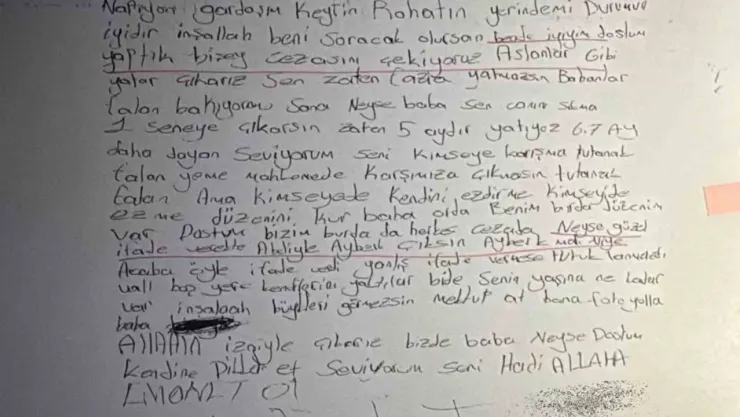 Napıyon gardaşım Keyfin Rahatın yerindemi Durumun
iyidir inşallah beni soracak olursan bende iyiyim dostum
yaptık bizey cezasını çekiyoruz Aslanlar Gibi
yatar çıkarız Sen zaten fazla yatmazsın Babanlar
falan bakıyormu Sana Neyse baba sen canın sıkma
1 seneye çıkarsın zaten 5 aydır yatıyoz 6.7 Ay
daha dayan Seviyorum seni Kimseye karışma tutanak
falan yeme mahkemede Karşımıza çıkmasın tutanak
falan Ama Kimseyede Kendini ezdirme Kimseyide
ezme düzenini Kur baba orda Benim burda düzenim
var Dostum bizim burda da herkes cezada Neyse güzel
ifade verdik Abiyle Ayberk Çıksın Ayberk diye
Acaba öyle ifade verdi yanlış ifade verse tutuk
vall boş yere bide Senin yaşına ne kadar
var inşalaah büyükleri görmezsin mektup at bana foto yolla
baba
ALLAHIN izniyle çıkarız bizde baba Neyse Dostum
Kendine Dikkat et Seviyorum seni Hadi ALLAHA
EMANET Ol